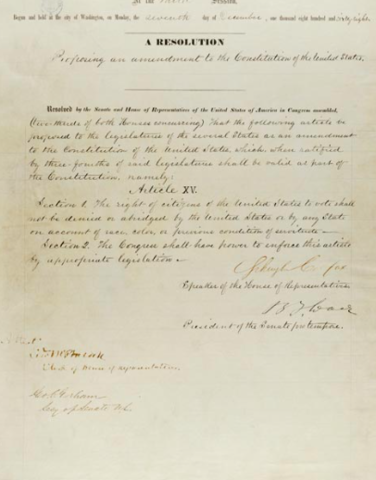 At the Third Session,
Begun and held at the city of Washington, on Monday, the seventh day of December, one thousand eight hundred and sixty-eight.
A RESOLUTION
Proposing an amendment to the Constitution of the United States.
Resolved by the Senate and House of Representatives of the United States of America in Congress assembled,
(two-thirds of both Houses concurring) That the following article be
proposed to the legislatures of the several States as an amendment
to the Constitution of the United States, which, when ratified
by three-fourths of said legislatures shall be valid as part of
the Constitution, namely:
Article XV.
Section 1. The right of citizens of the United States to vote shall
not be denied or abridged by the United States or by any State
on account of race, color, or previous condition of servitude—
Section 2. The Congress shall have power to enforce this article
by appropriate legislation—
Schuyler Colfax
Speaker of the House of Representatives
B F Wade
President of the Senate pro tempore.
Attest
Clerk of House of Representatives
Geo C Gorham
Secy of Senate U.S.